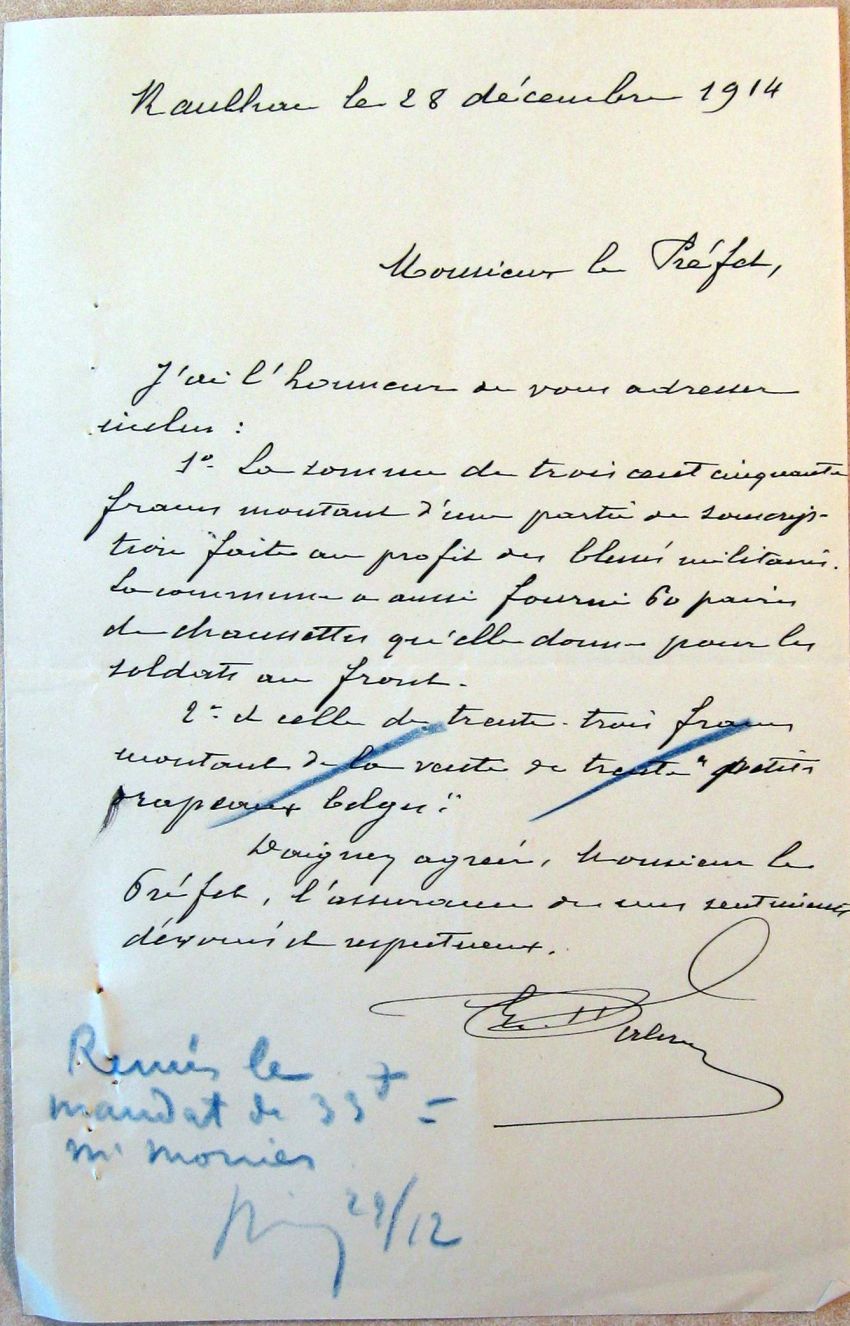 Raulhac le 28 décembre 1914
Monsieur le Préfet,
J'ai l'honneur de vous adresser
inclus :
1º La somme de trois cent cinquante
francs montant d'une partie de souscrip-
tion faite au profit des blessés militaires.
La commune a aussi fourni 60 paires
de chaussettes qu'elle donne pour les
soldats au front.
2º et celle de trente-trois francs
montant de la vente de trente "petits
drapeaux belges".
Daignez agréer, Monsieur le
Préfet, l'assurance de mes sentiments
dévoués et respectueux.
Remis le
mandat de 33 f =
Mr Monier
29/12